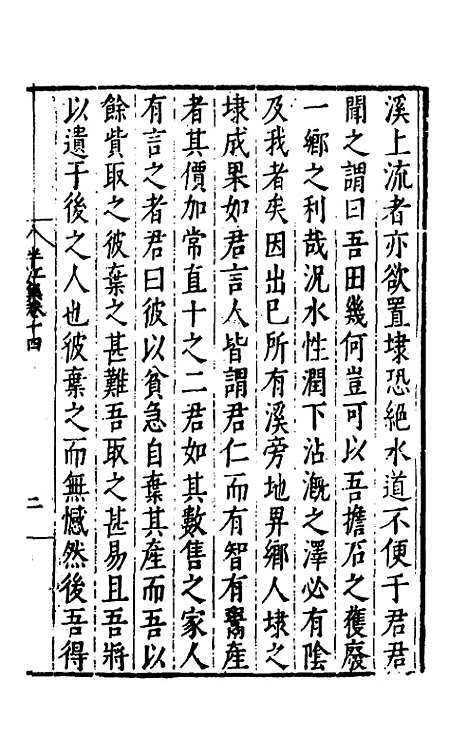 溪上流者亦欲置埭恐絕水道不便于君君
聞之謂曰吾田幾何豈可以吾擔石之獲廢
一鄉之利哉況水性潤下沾漑之澤必有陰
及我者矣因出巳所有溪旁地畀鄉人埭之
埭成果如君言人皆謂君仁而有智有鬻產
者其價加常直十之二君如其數售之家人
有言之者君曰彼以貧急自棄其產而吾以
餘貲取之彼棄之甚難吾取之甚易且吾將
以遺于後之人也彼棄之而無憾然後吾得
半江集卷十四
二